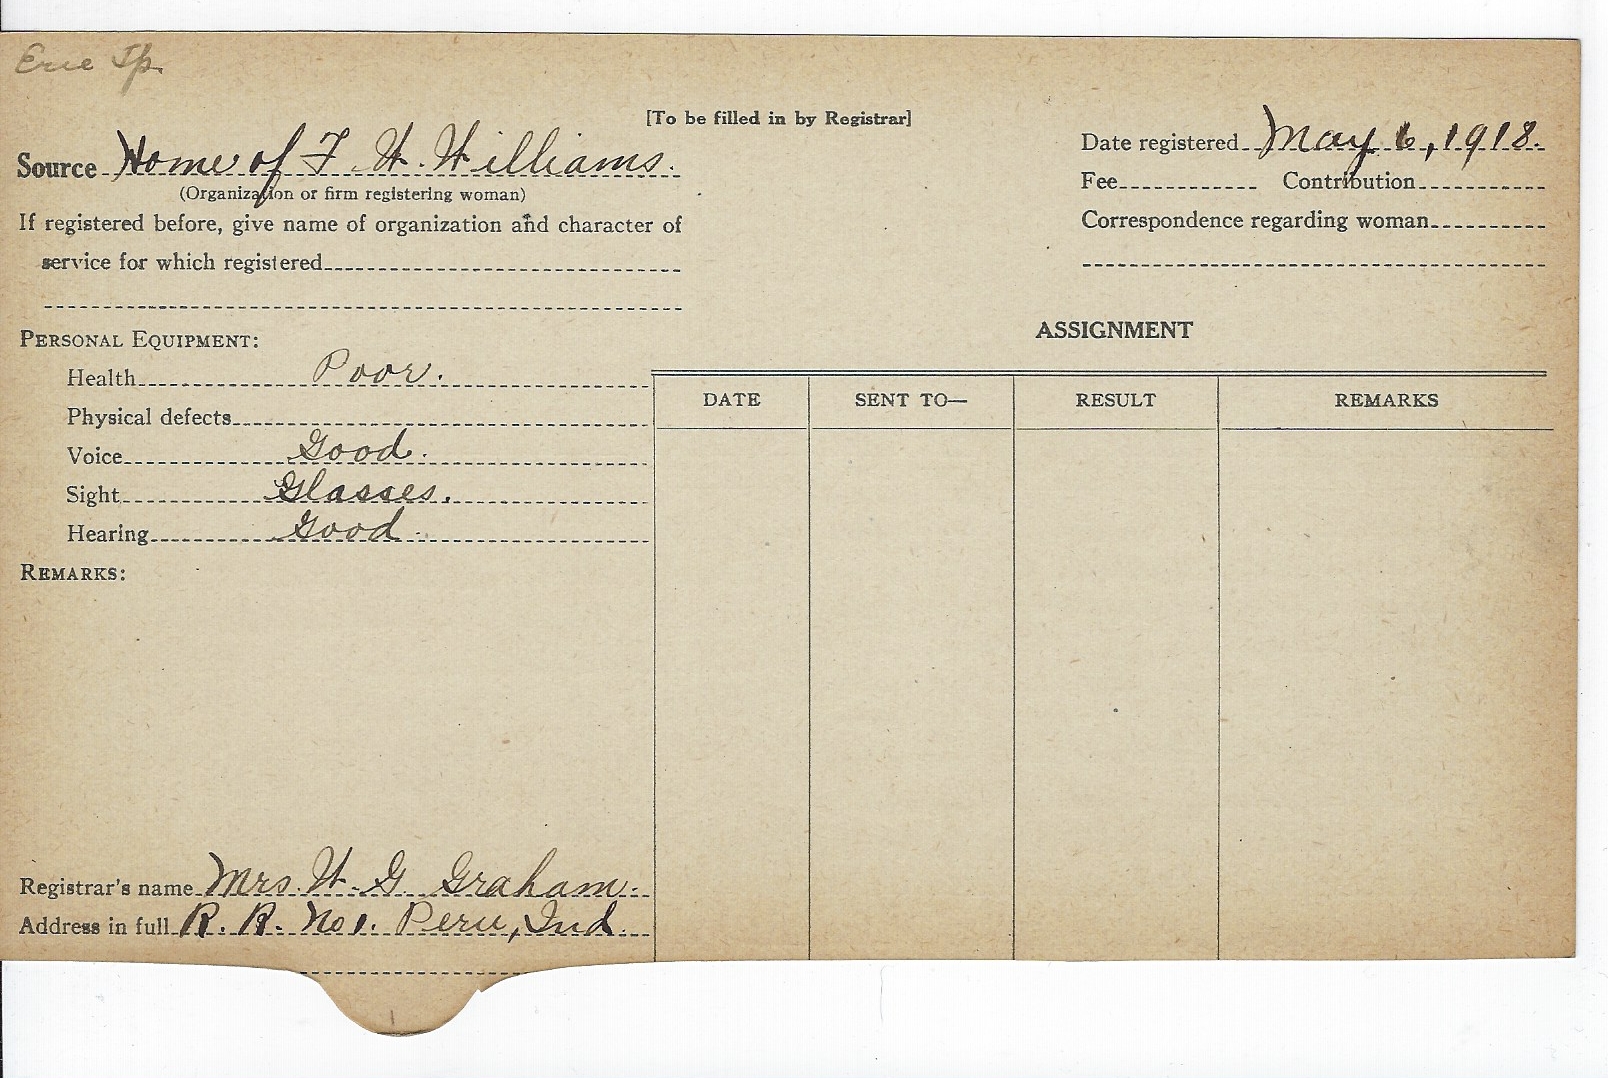 Erie Tp.
[To be filled in by Registrar]
Source Home of F. W. Williams.
(Organization or firm registering woman)
If registered before, give name of organization and character of
service for which registered
Date registered May 6, 1918.
Fee Contribution
Correspondence regarding woman
PERSONAL EQUIPMENT:
Health Poor.
Physical defects
Voice Good.
Sight Glasses.
Hearing Good.
REMARKS:
Registrar's name Mrs. W. G. Graham.
Address in full R. R. No 1. Peru, Ind.
ASSIGNMENT
DATE SENT TO— RESULT REMARKS